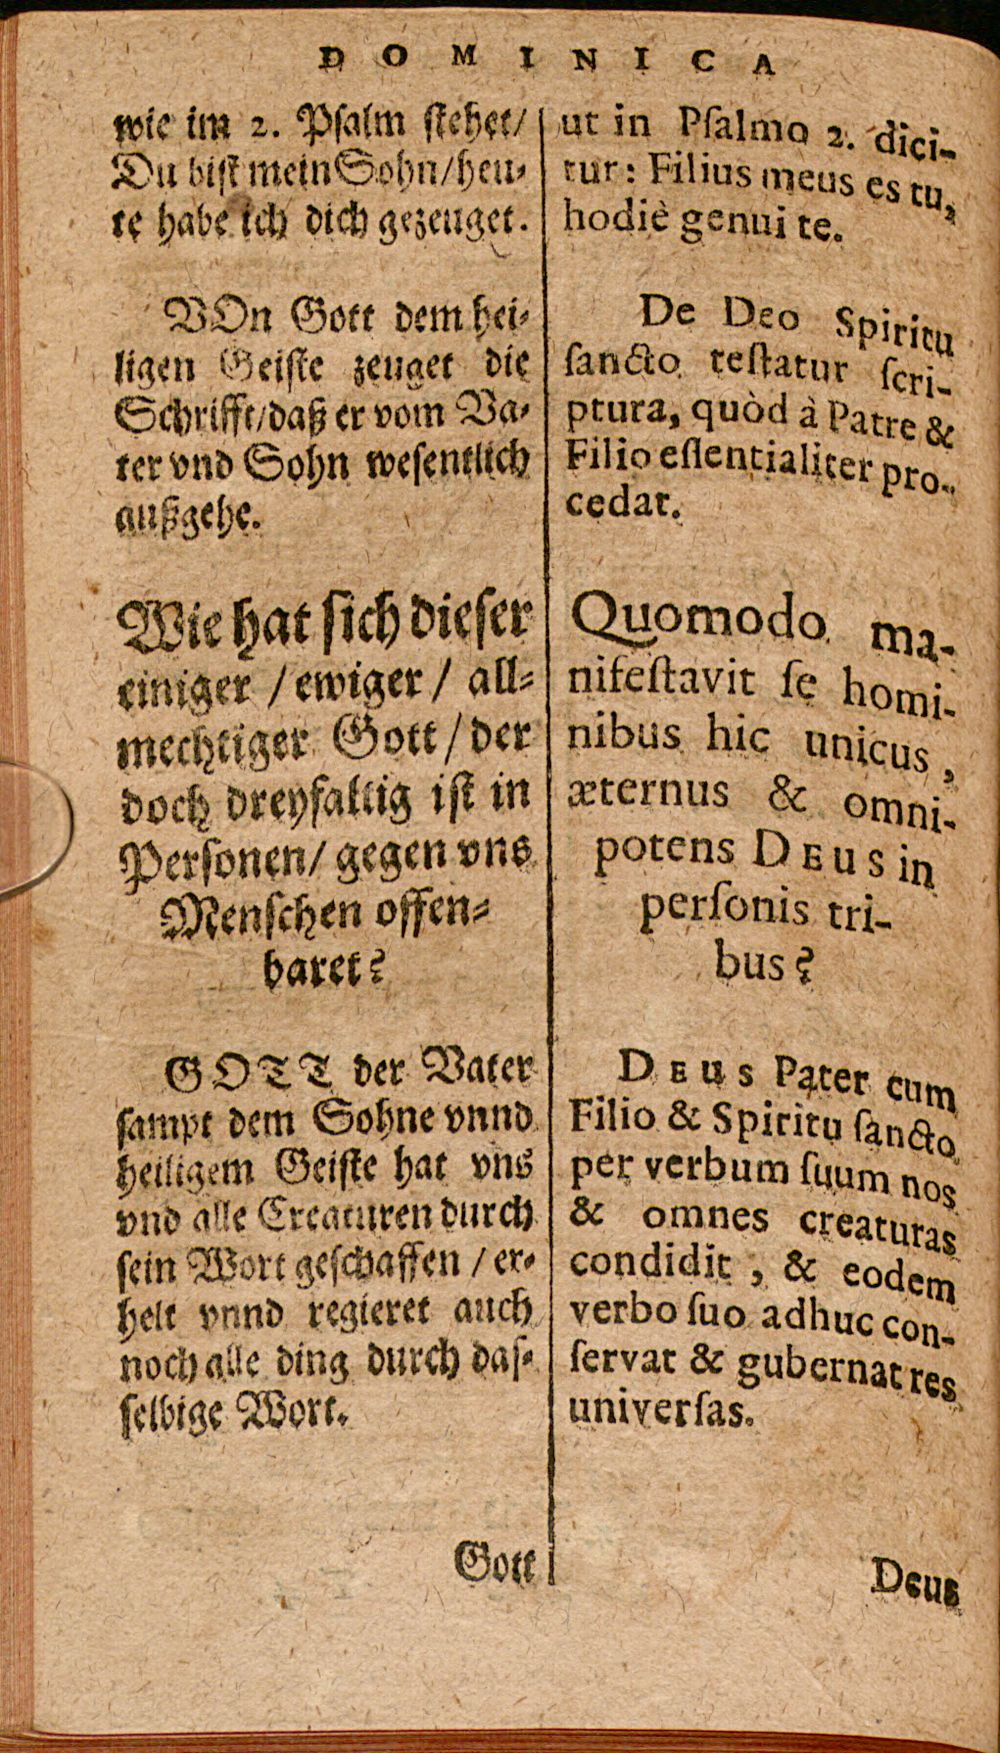 DOMINICA
wie im 2. Pſalm ſtehet/
Du biſt mein Sohn/heu-
te habe ich dich gezeuget.
VOn Gott dem hei-
ligen Geiſte zeuget die
Schrifft/daß er vom Va-
ter vnd Sohn weſentlich
außgehe.
Wie hat ſich dieſer
einiger / ewiger / all-
mechtiger Gott / der
doch dreyfaltig iſt in
Perſonen/ gegen vns
Menſchen offen-
baret?
GOTT der Vater
ſampt dem Sohne vnnd
heiligem Geiſte hat vns
vnd alle Creaturen durch
ſein Wort geſchaffen / er-
helt vnnd regieret auch
noch alle ding durch daſ-
ſelbige Wort.
Gott
ut in Pſalmo 2. dici-
tur: Filius meus es tu,
hodiè genui te.
De Deo Spiritu
ſancto teſtatur ſcri-
ptura, quòd à Patre &
Filio eſſentialiter pro-
cedat.
Quomodo ma-
nifeſtavit ſe homi-
nibus hic unicus,
æternus & omni-
potens DEUS in
perſonis tri-
bus?
DEUS Pater cum
Filio & Spiritu ſancto
per verbum ſuum nos
& omnes creaturas
condidit, & eodem
verbo ſuo adhuc con-
ſervat & gubernat res
univerſas.
Deus